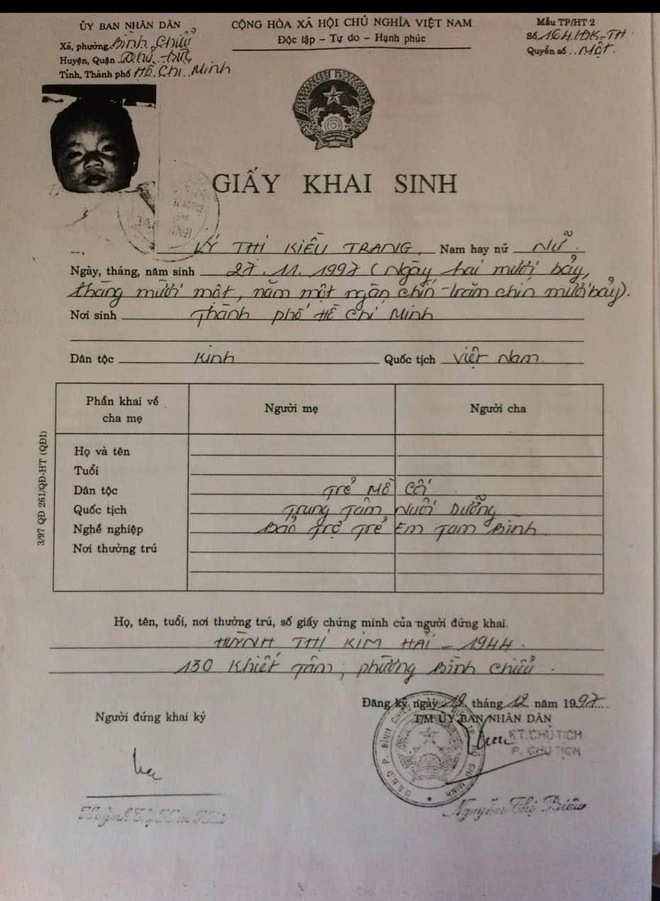 ỦY BAN NHÂN DÂN
Xã, phường Bình Chiểu
Huyện, Quận Thủ Đức
Tỉnh, Thành phố Hồ Chí Minh
CỘNG HÒA XÃ HỘI CHỦ NGHĨA VIỆT NAM
Độc lập - Tự do - Hạnh phúc
Mẫu TP/HT 2
Số 164/ĐK-TH
Quyển số Một
GIẤY KHAI SINH
LÝ THỊ KIỀU TRANG Nam hay nữ NỮ
Ngày, tháng, năm sinh 27.11.1997 (Ngày hai mươi bảy,
tháng mười một, năm một ngàn chín trăm chín mươi bảy).
Nơi sinh Thành phố Hồ Chí Minh
Dân tộc Kinh Quốc tịch Việt Nam
Phần khai về cha mẹ Người mẹ Người cha
Họ và tên
Tuổi
Dân tộc Trẻ Mồ Côi
Quốc tịch Trung Tâm Nuôi Dưỡng
Nghề nghiệp Bảo Trợ Trẻ Em Tam Bình
Nơi thường trú
3/97 QĐ 261/QĐ-HT (QĐ1)
Họ, tên, tuổi, nơi thường trú, số giấy chứng minh của người đứng khai.
HUỲNH THỊ KIM HẢI - 1944.
130 Khiết Tâm, phường Bình Chiểu.
Đăng ký, ngày 12 tháng 12 năm 1997
Người đứng khai ký
T/M ỦY BAN NHÂN DÂN
KT.CHỦ TỊCH
P. CHỦ TỊCH